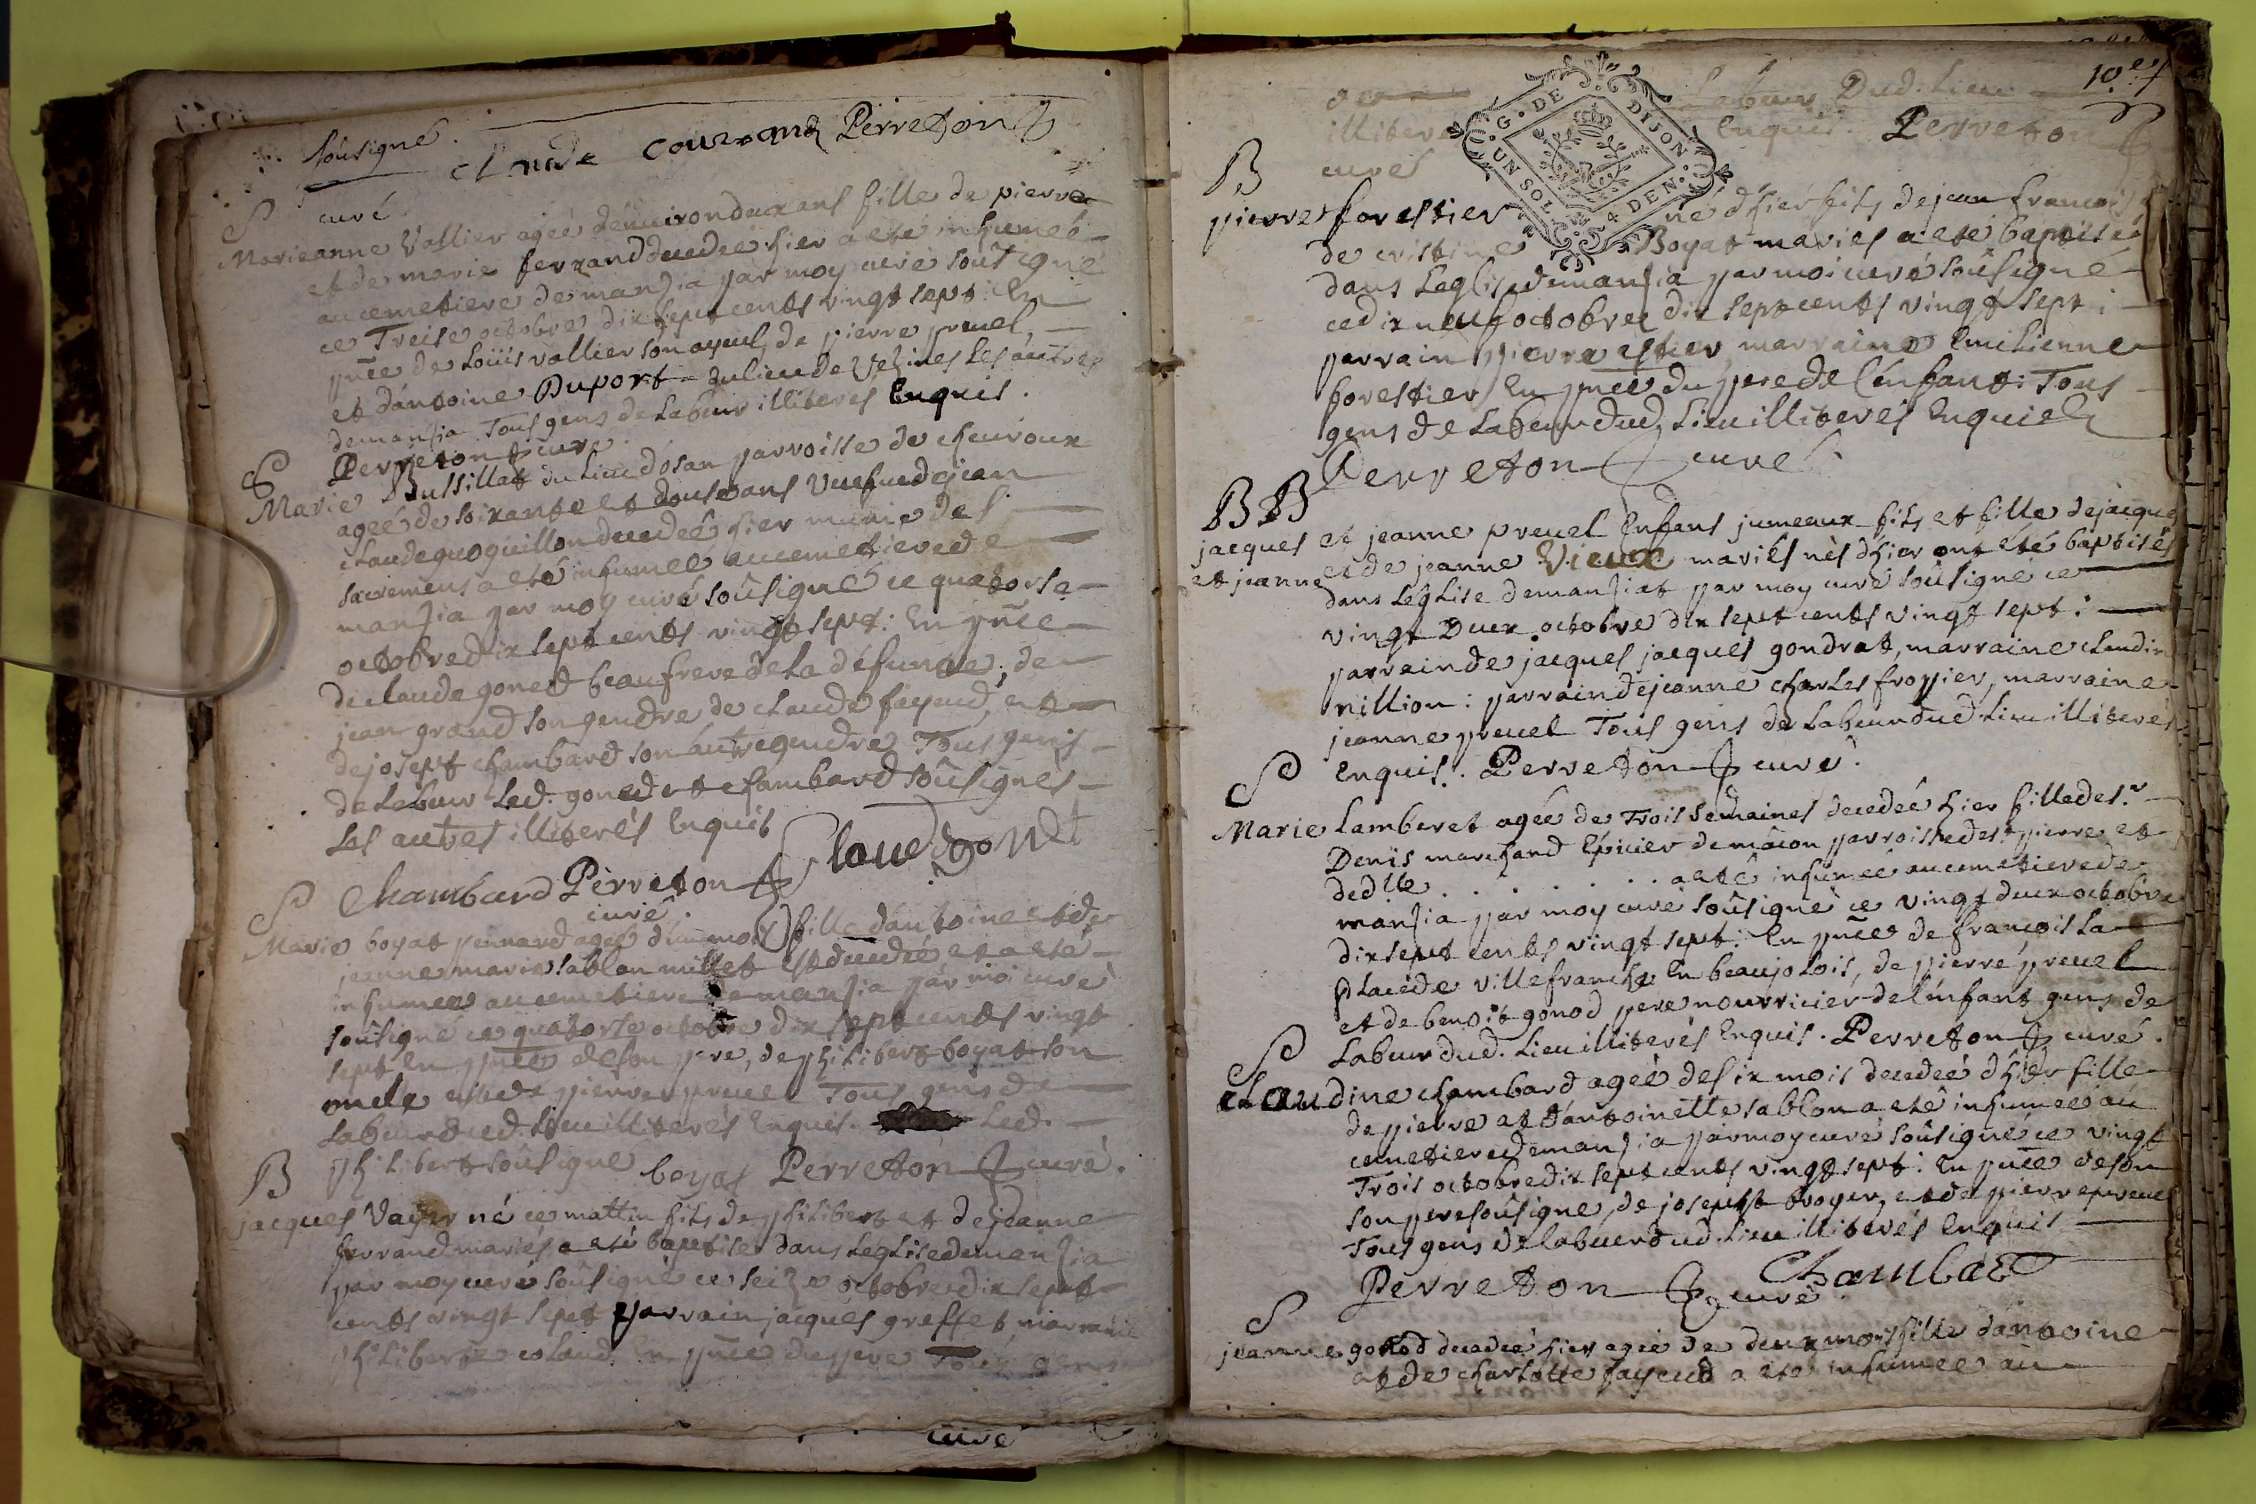 soûsigné.
claude courrand Perreton
curé
S
Marieanne Vallier ageé d'environ deux ans fille de pierre
et de marie ferrand decedeé hier a eté inhumeé
au cemetiere de manzia par moy curé soûsigné
ce Treise octobre dix sept cents vingt sept: En
pñce de Loüis vallier son ayeul, de pierre pruel,
et d'antoine Duport du lieu de Vezines Les autres
de manzia Tous gens de Labeur illiterés Enquis.
Perreton curé.
S
Marie Bussillat du Lieu dosan parroisse de cheuroux
ageé de soixante et douse ans Veufue de jean
claude quoquillon decedeé hier munie des
sacremens a eté inhumeé au cemetiere de
manzia par moy curé soûsigné ce quatorse
octobre dix sept cents vingt sept: En pñce
de claude goned beaufrere de la défunte, de
jean grand son gendre de claude fayend, et
de josept chambard son autre gendre Tous gens
de Labeur Led. goned et chambard soûsignés
Les autres illiterés Enquis
Chambard Perreton Claud gonet
curé.
S
Marie boyat pennard ageé d'un mois fille d'antoine et de
jeanne marie sablon millet est decedeé et a eté
inhumeé au cemetiere de manzia par moi curé
soûsigné ce quatorse octobre dix sept cents vingt
sept En pñce de son pere, de philibert boyat son
oncle et de pierre pruel Tous gens de
Labeur dud. Lieu illiterés Enquis. Led.
philibert soûsigné boyat Perreton curé.
B
jacques Vayer né ce mattin fils de philibert et de jeanne
ferrand mariés a eté baptisé dans Leglise de manzia
par moy curé soûsigné ce seize octobre dix sept
cents vingt sept parrain jacques greffet marraine
philiberte coland En pñce de pere Tous gens
curé
10e
de Labeur Dud. Lieu
illiteré Enquis. Perreton
curé
G. DE DIJON.
UN SOL 4 DEN.
B
pierre forestier né d'hier fils de jean francois
de cristine Boyat mariés a eté baptisé
dans Leglise de manzia par moi curé soûsigné
ce dix neuf octobre dix sept cents vingt sept:
parrain pierre estier marraine Emilienne
forestier En pñce du pere de L'enfant: Tous
gens de Labeur dud. Lieu illiterés Enquis
Perreton curé.
BB
jacques et jeanne pruel Enfans jumeaux fils et fille de jacques
et jeanne et de jeanne Vieux mariés nés d'hier ont eté baptisés
dans Léglise de manziat par moy curé soûsigné ce
vingt Deux octobre dix sept cents vingt sept:
parrain de jacques jacques gondrat, marraine claudin
nillion: parrain de jeanne charles froppier, marraine
jeanne pruel Tous gens de Labeur dud. Lieu illiterés
Enquis. Perreton curé.
S
Marie Lamberet ageé de Trois semaines decedeé hier fille de Sr
Denis marchand Epicier de mâcon parroisse de st pierre et
de dlle . . . . . . a eté inhumeé au cemetiere de
manzia par moy curé soûsigné ce vingt deux octobre
dix sept cents vingt sept: En pñce de francois La
place de villefranche En beaujolois, de pierre pruel
et de benoît gonod pere nourricier de l'énfant gens de
Labeur dud. Lieu illiterés Enquis. Perreton curé.
S
claudine chambard ageé de six mois decedeé d'hier fille
de pierre et d'antoinette sablon a eté inhumeé au
cemetiere de manzia par moy curé soûsigné ce vingt
Trois octobre dix sept cents vingt sept: En pñce de son
son pere soûsigné, de josept broyer, et de pierre pruel
Tous gens de labeur dud. Lieu illiterés Enquis
Perreton curé. Chambard
S
jeanne gonod decedeé hier ageé de deux mois fille d'antoine
et de charlotte fayend a eté inhumeé au